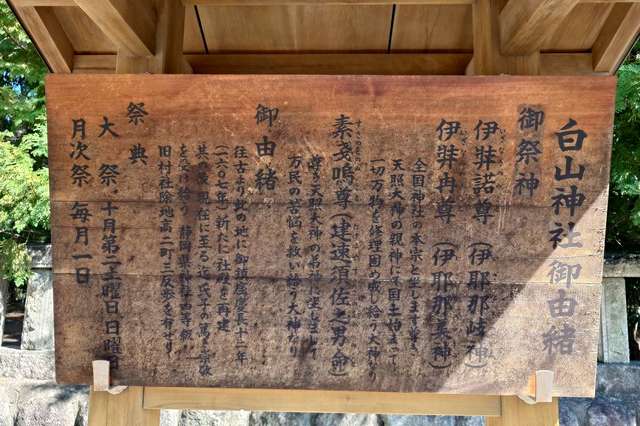 白山神社御由緒
御祭神
伊弉諾尊（伊耶那岐神）
伊弉冉尊（伊耶那美神）
全国神社の本宗と坐します
天照大神の親神にて国土始めて
一切万物を修理固め成し給う大神なり
素戔嗚尊（建速須佐之男命）
尊は天照大神の弟神に坐しまして
万民の苦悩を救い給う大神なり
御由緒
往古より此の地に御鎮座慶長十二年
（一六〇七年）新たに社殿を再建
其の後現在に至る迄氏子の篤き崇敬
を受け給う 静岡県神社庁等級
旧村社除地高二町三反歩を有せり
祭典
大 祭 十月第二土曜日日曜日
月次祭 毎月一日